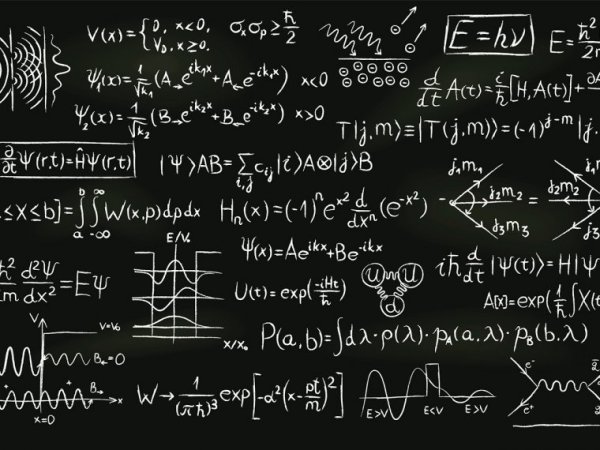 V(x) = { 0, x<0,
V₀, x≥0.
σₓσₚ ≥ ħ/2
E = hν
E = ħ²/2m
ψ₁(x) = 1/√k₁ (A→ e^{ik₁x} + A← e^{-ik₁x}) x<0
d/dt A(t) = i/ħ [H, A(t)] + ∂A
ψ₂(x) = 1/√k₂ (B→ e^{ik₂x} + B← e^{-ik₂x}) x>0
T|j,m⟩ ≡ |T(j,m)⟩ = (-1)^{j-m} |j,
∂/∂t Ψ(r,t) = ĤΨ(r,t)
|Ψ⟩AB = ∑_{i,j} c_{ij} |i⟩A⊗|j⟩B
j₁m₁
j₂m₂
j₃m₃
=
j₁m₁
j₂m₂
≤X≤b] = ∫_a^b ∫_{-∞}^{∞} W(x,p)dpdx
Hₙ(x) = (-1)ⁿ e^{x²} d/dxⁿ (e^{-x²})
E/V₀
X/X₀
ψ(x) = Ae^{ikx} + Be^{-ikx}
ħ²/m d²Ψ/dx² = EΨ
U(t) = exp(-iHt/ħ)
u
u
d
iħ d/dt |Ψ(t)⟩ = H|Ψ
A[x] = exp(1/ħ ∫X(t
V
V=V₀
B←=0
B→
x
x=0
P(a,b) = ∫dλ·ρ(λ)·p_A(a,λ)·p_B(b,λ)
W → 1/(πħ)³ exp[-α²(x - pt/m)²]
E>V
E<V
E>V
e⁻
e⁺